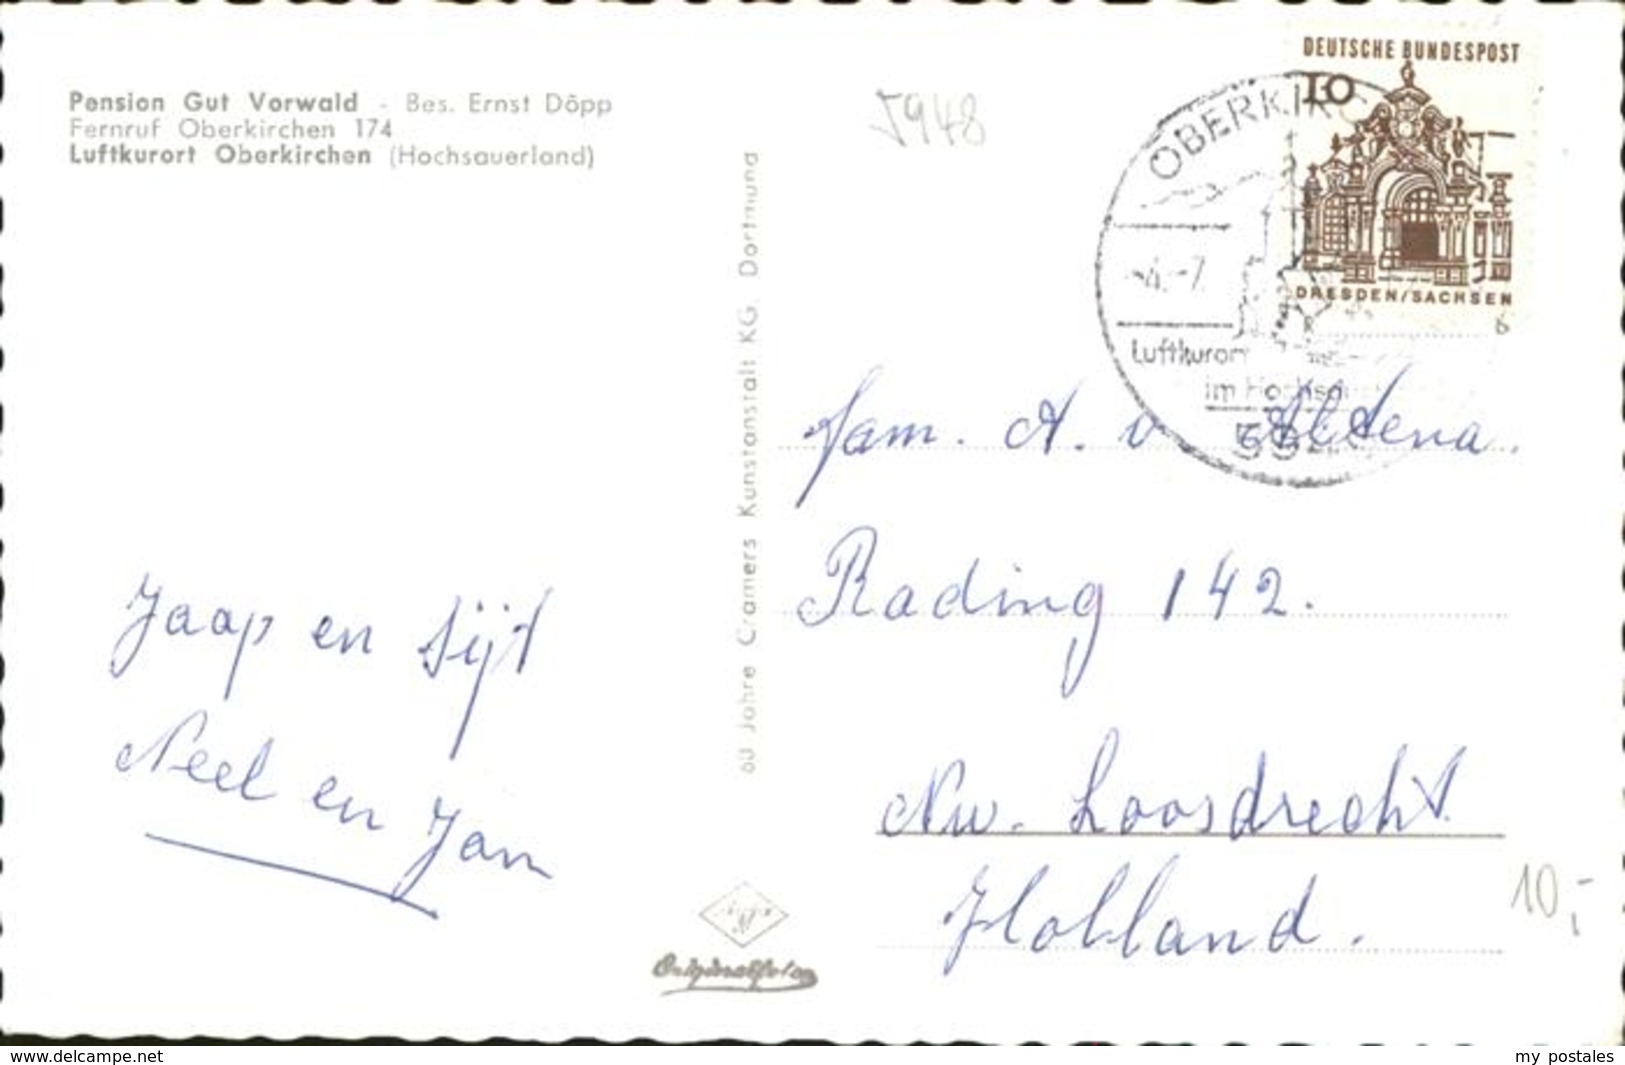 Pension Gut Vorwald - Bes. Ernst Döpp
Fernruf Oberkirchen 174
Luftkurort Oberkirchen (Hochsauerland)
5948
60 Jahre Cramers Kunstanstalt KG, Dortmund
DEUTSCHE BUNDESPOST
10
DRESDEN/SACHSEN
OBERKIRC
-4.-7.
Luftkurort
im Hochsa
Fam. A. v Altena.
Rading 142.
Nw. Loosdrecht.
Holland.
Jaap en Sijt
Neel en Jan
Originalfoto
10,-
www.delcampe.net
my postales